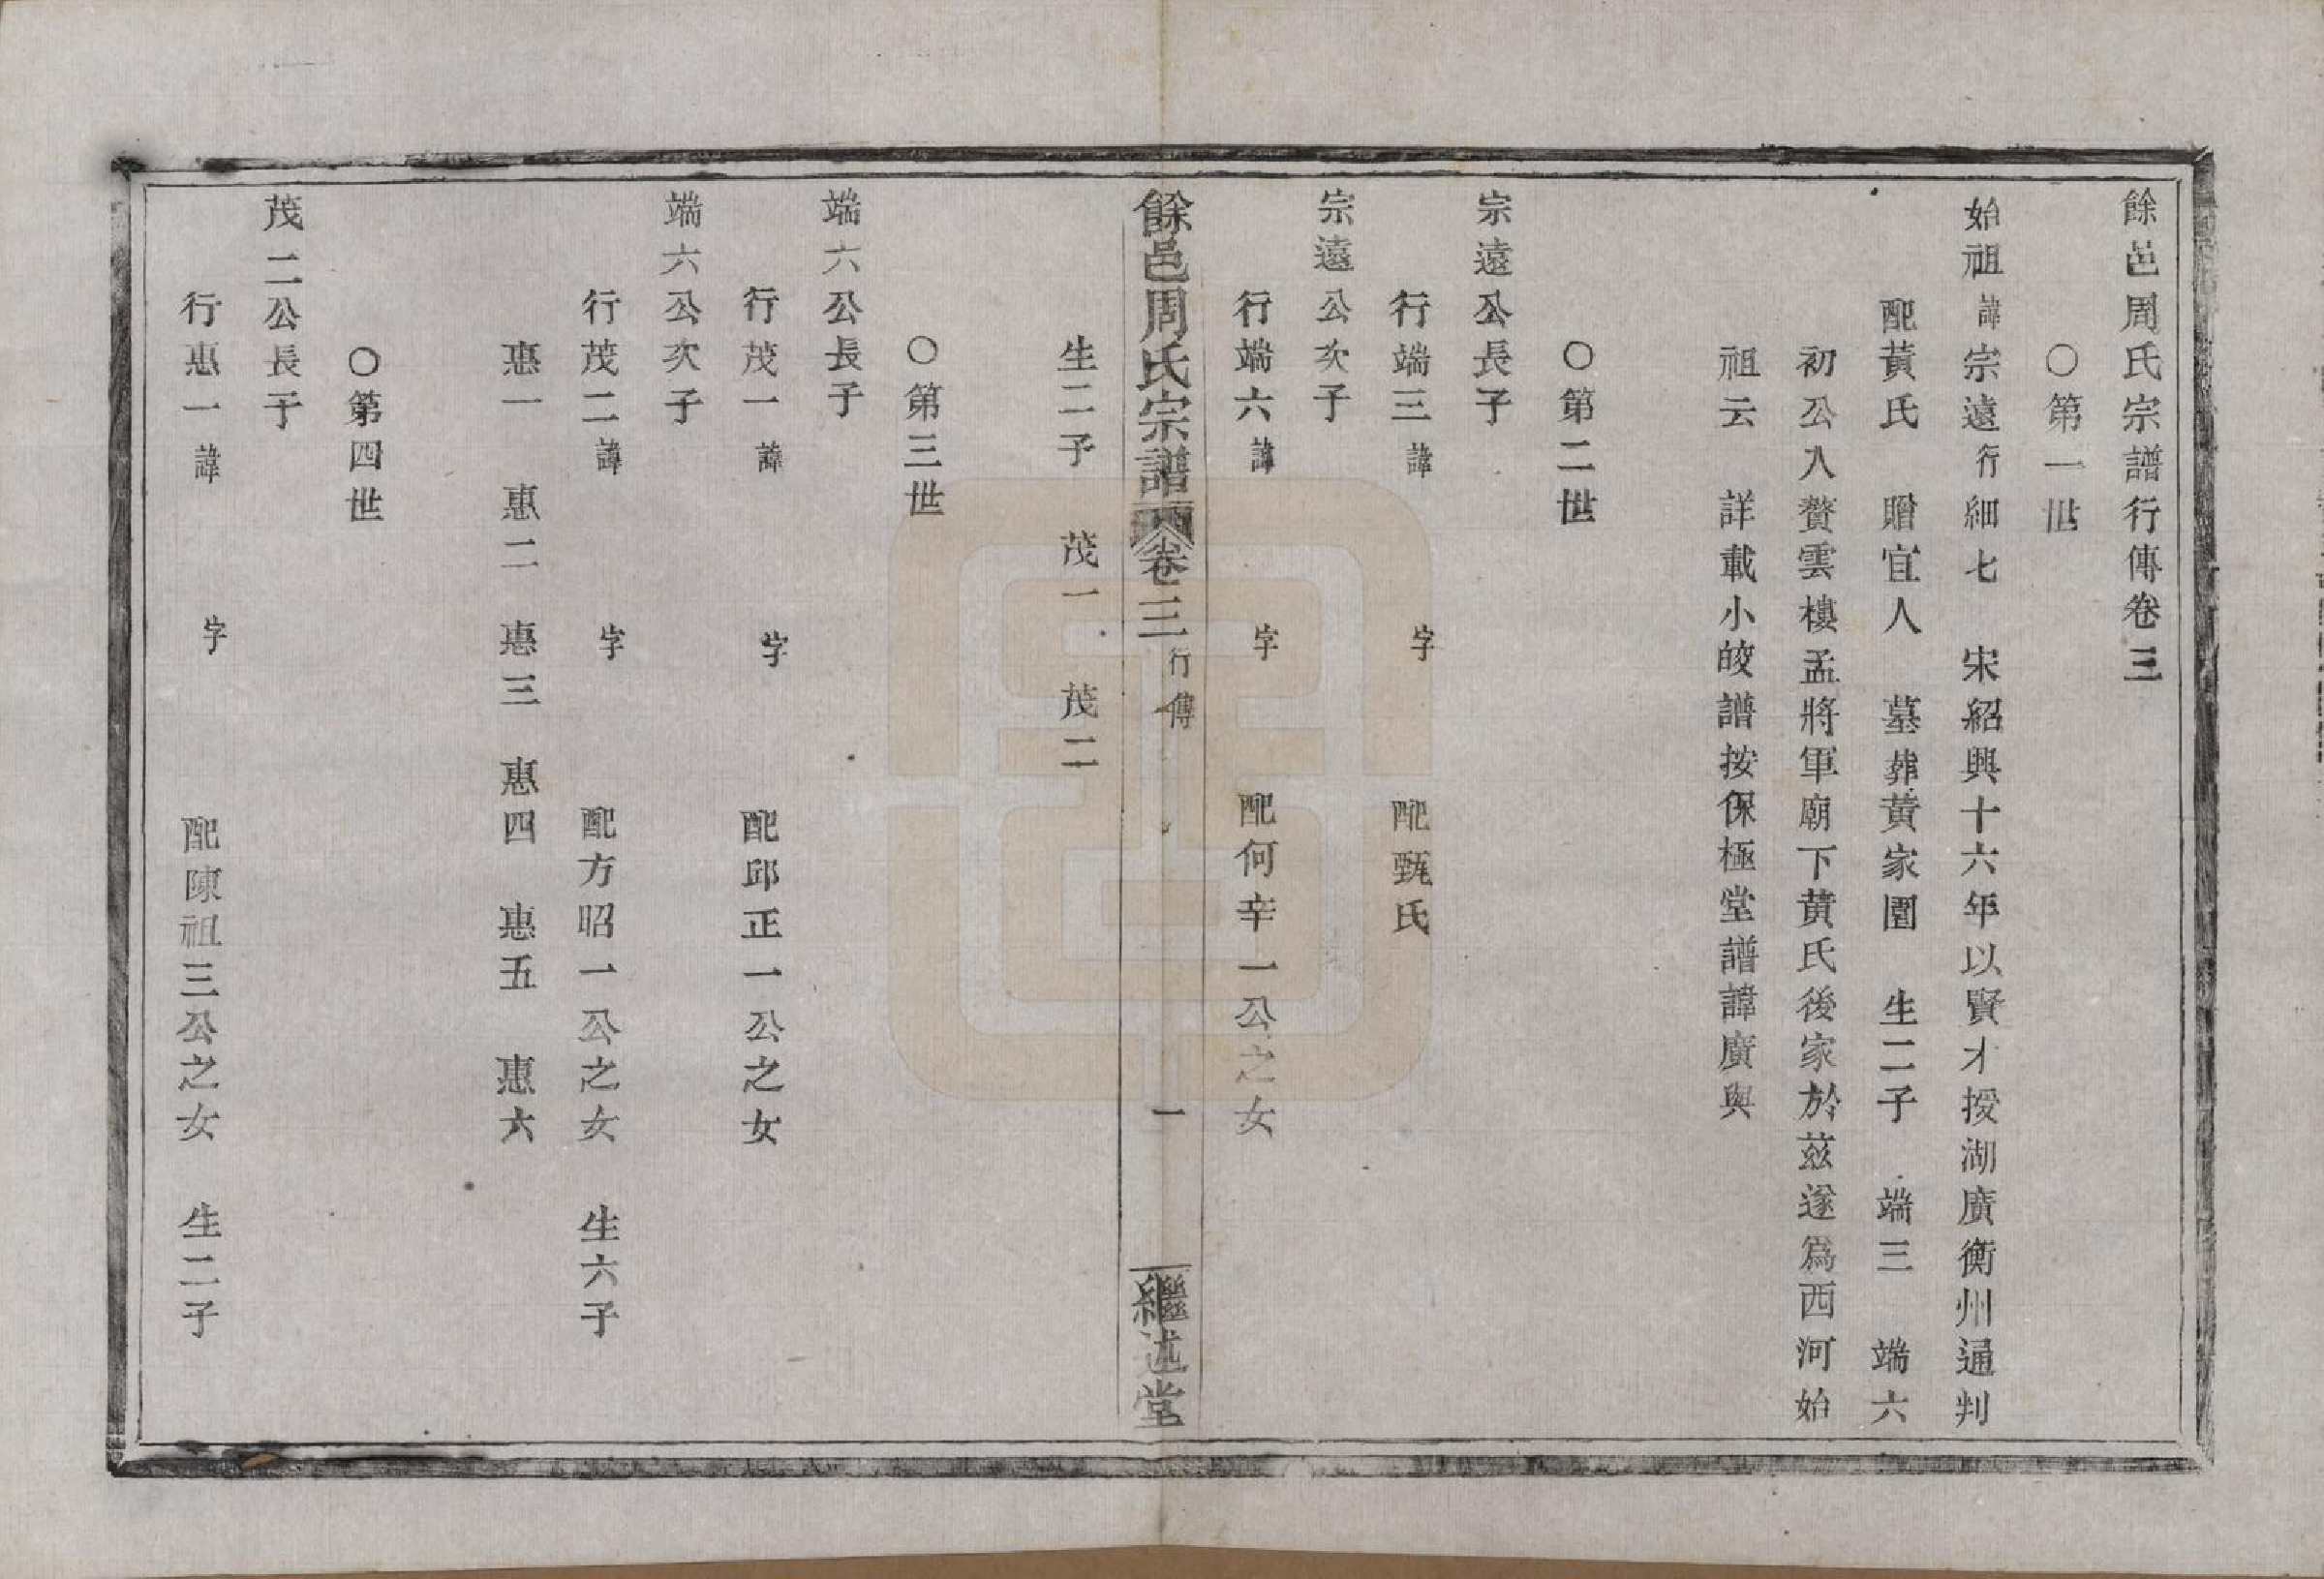 餘邑周氏宗譜行傳卷三
○第一世
始祖諱宗遠行細七　宋紹興十六年以賢才授湖廣衡州通判
配黃氏　贈宜人　墓葬黃家園　生二子　端三　端六
初公入贅雲樓孟將軍廟下黃氏後家於茲遂爲西河始
祖云　詳載小皎譜按保極堂譜諱廣與
○第二世
宗遠公長子
行端三諱　字　配甄氏
宗遠公次子
行端六諱　字　配何辛一公之女
餘邑周氏宗譜　卷三　行傳　一　繼述堂
生二子　茂一　茂二
○第三世
端六公長子
行茂一諱　字　配邱正一公之女
端六公次子
行茂二諱　字　配方昭一公之女　生六子
惠一　惠二　惠三　惠四　惠五　惠六
○第四世
茂二公長子
行惠一諱　字　配陳祖三公之女　生二子